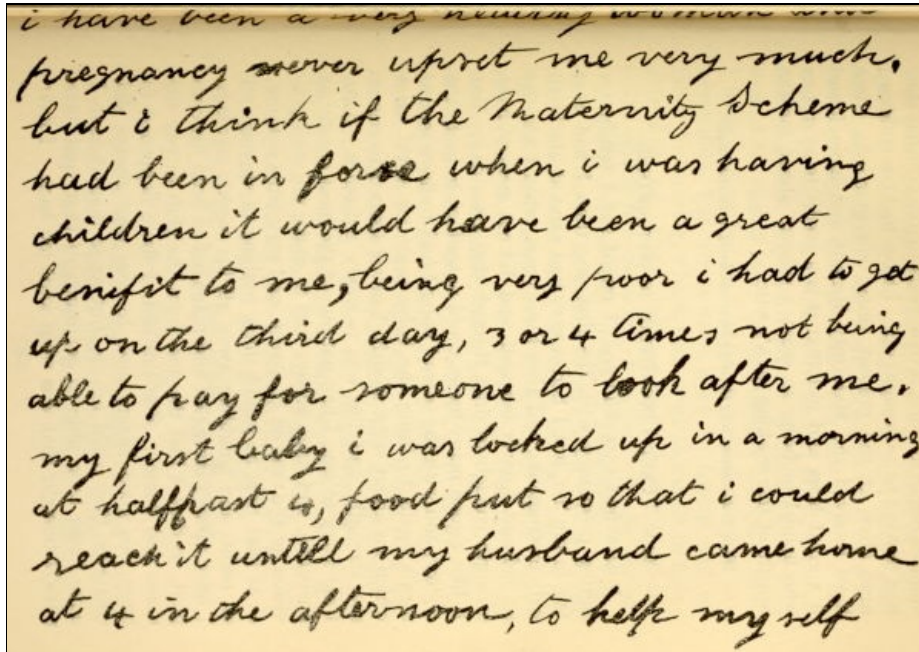 i have been a very healthy woman and
pregnancy never upset me very much.
but i think if the Maternity Scheme
had been in force when i was having
children it would have been a great
benifit to me, being very poor i had to get
up on the third day, 3 or 4 times not being
able to pay for someone to look after me.
my first baby i was locked up in a morning
at halfpast 4, food put so that i could
reach it untill my husband came home
at 4 in the afternoon, to help myself